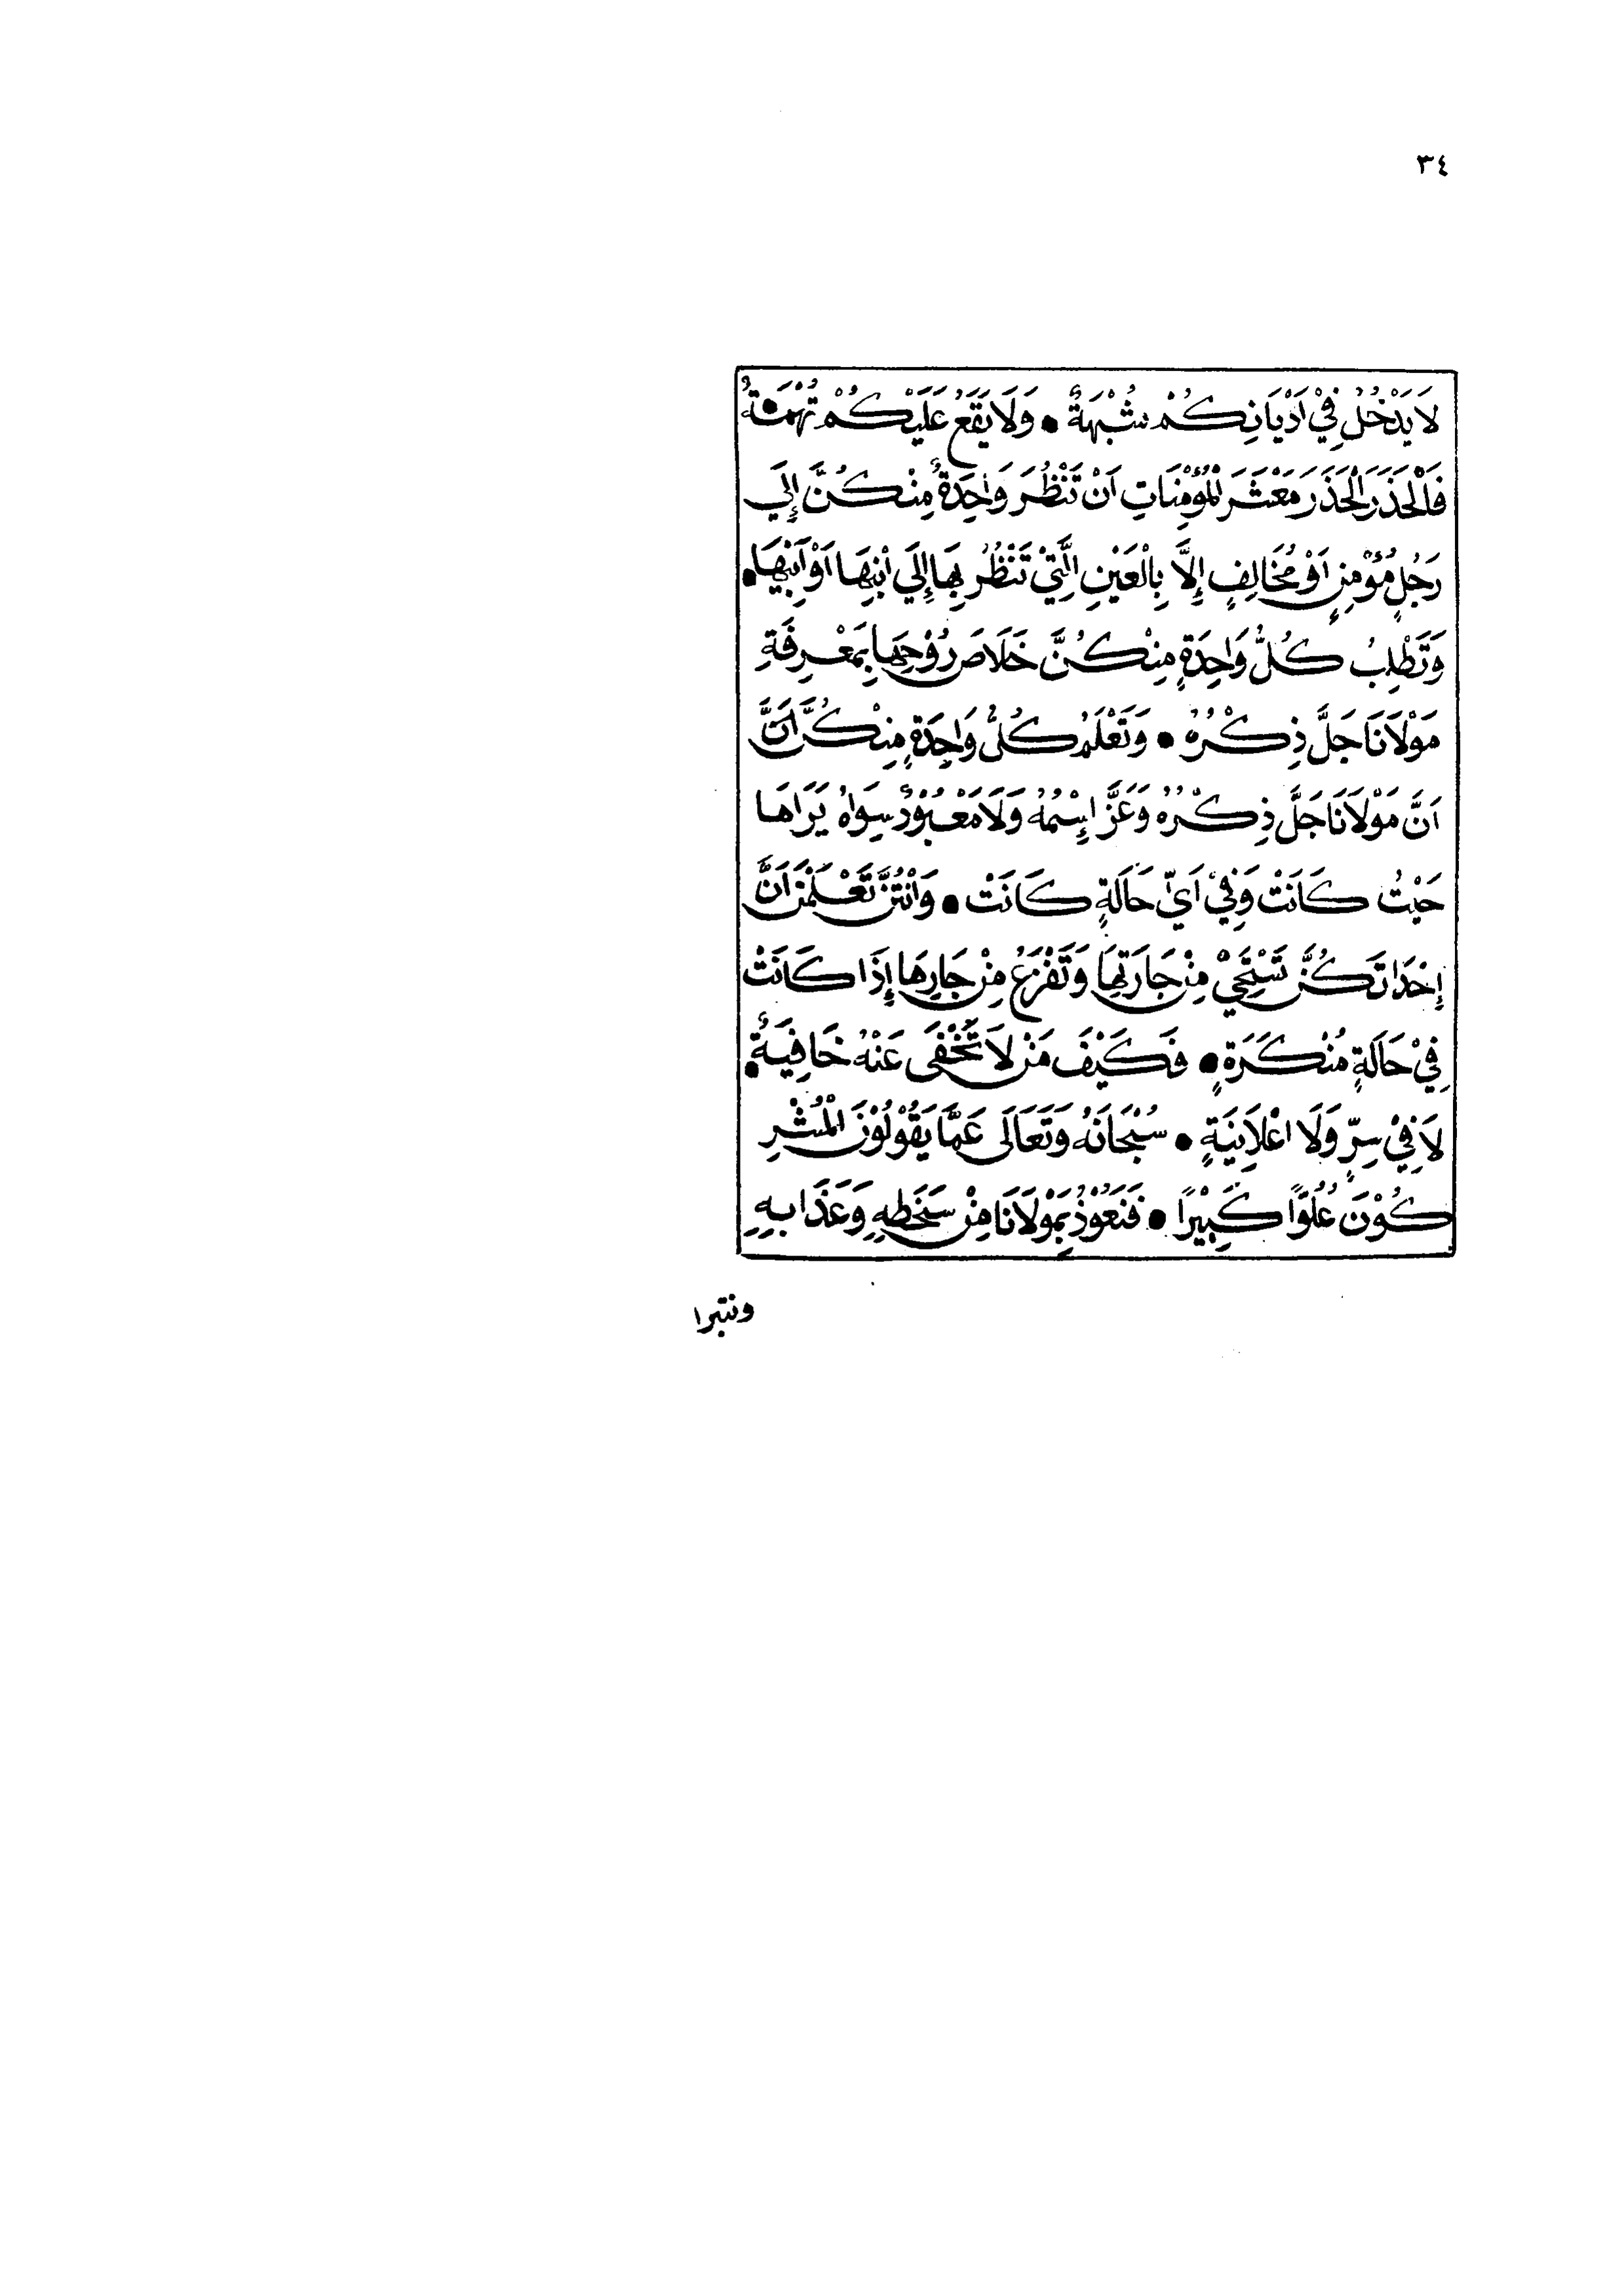 ٣٤
لَا يَدْخُلُ فِيْ اَدْيَانِكُمْ شُبْهَةٌ • وَلَا يَقَعُ عَلَيْكُمْ تُهْمَةٌ •
فَالْحَذَرَ الْحَذَرَ مَعْشَرَ الْمُؤْمِنَاتِ اَنْ تَنْظُرَ وَاحِدَةٌ مِنْكُنَّ إِلَي
رَجُلٍ مُؤْمِنٍ اَوْ مُخَالِفٍ إِلَّا بِالْعَيْنِ الَّتِيْ تَنْظُرُ بِهَا إِلَي اٰبْنِهَا اَوْ اَبِيْهَا •
وَتَطْلِبُ كُلُّ وَاحِدَةٍ مِنْكُنَّ خَلَاصَ رُوْحِهَا بِمَعْرِفَةِ
مَوْلَانَا جَلَّ ذِكْرُهُ • وَتَعْلَمُ كُلُّ وَاحِدَةٍ مِنْكُنَّ اَنَّ
اَنَّ مَوْلَانَا جَلَّ ذِكْرُهُ وَعَزَّ اِسْمُهُ وَلَا مَعْبُوْدٌ سِوَاهُ يَرَاهَا
حَيْثُ كَانَتْ وَفِيْ اَيِّ حَالَةٍ كَانَتْ • وَاَنْتُنَّ تَعْلَمْنَ اَنَّ
إِحْدَاتَكُنَّ تَسْتَحِيْ مِنْ جَارَتِهَا وَتَفْزَعُ مِنْ جَارِهَا إِذَا كَانَتْ
فِيْ حَالَةٍ مُنْكَرَةٍ • فَكَيْفَ مَنْ لَا تَخْفَى عَنْهُ خَافِيَةٌ •
لَا فِيْ سِرٍّ وَلَا اعْلَانِيَةٍ • سُبْحَانَهُ وَتَعَالَى عَمَّا يَقُوْلُوْنَ الْمُشْرِ
كُوْنَ عُلُوًّا كَبِيْرًا • فَنَعُوْذُ بِمَوْلَانَا مِنْ سَخَطِهِ وَعَذَابِهِ
ونتبرا